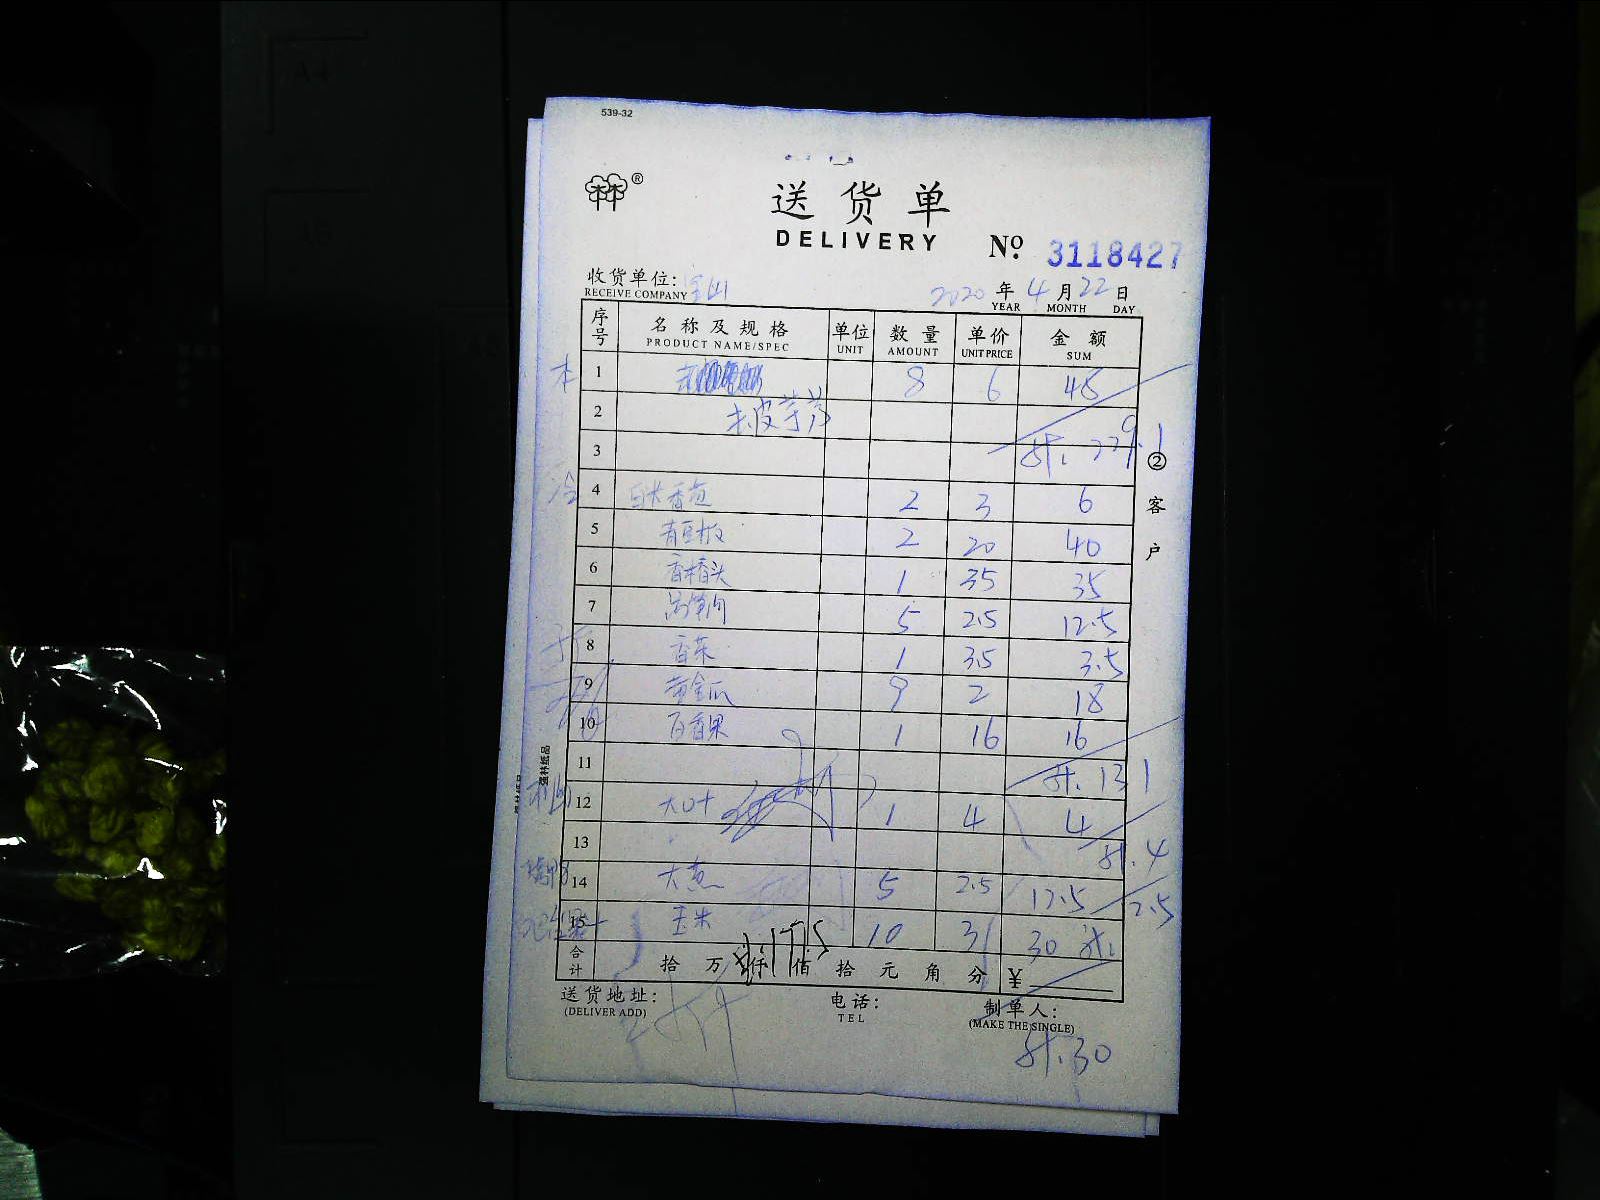 539-32
®
送货单
DELIVERY
No. 3118427
收货单位:
RECEIVE COMPANY
2020 年 4 月 22 日
YEAR MONTH DAY
序号 名称及规格 单位 数量 单价 金额
PRODUCT NAME/SPEC UNIT AMOUNT UNIT PRICE SUM
本 1 8 6 48
2 去皮芋艿
3 计. 229.1
冷 4 2 3 6
5 青豆板 2 20 40
6 1 35 35
7 5 2.5 12.5
8 香菜 1 3.5 3.5
9 黄金瓜 9 2 18
10 百香果 1 16 16
11 计. 131
12 大叶 1 4 4
13 计. 4
14 大葱 5 2.5 12.5 12.5
15 玉米 10 3 30 计.
合计 拾 万 仟 佰 拾 元 角 分 ¥
送货地址:
(DELIVER ADD)
电话:
TEL
制单人:
(MAKE THE SINGLE)
计.30
②客户
强林纸品